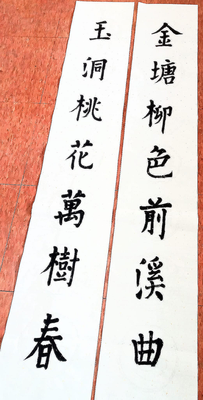 金塘柳色前溪曲
玉洞桃花萬樹春